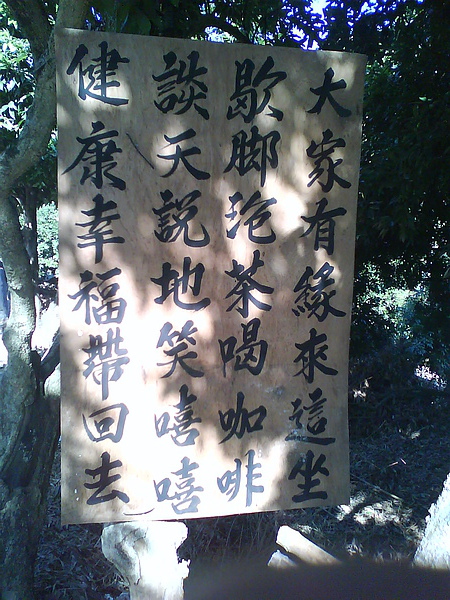 大家有緣來這坐
歇腳泡茶喝咖啡
談天說地笑嘻嘻
健康幸福帶回去